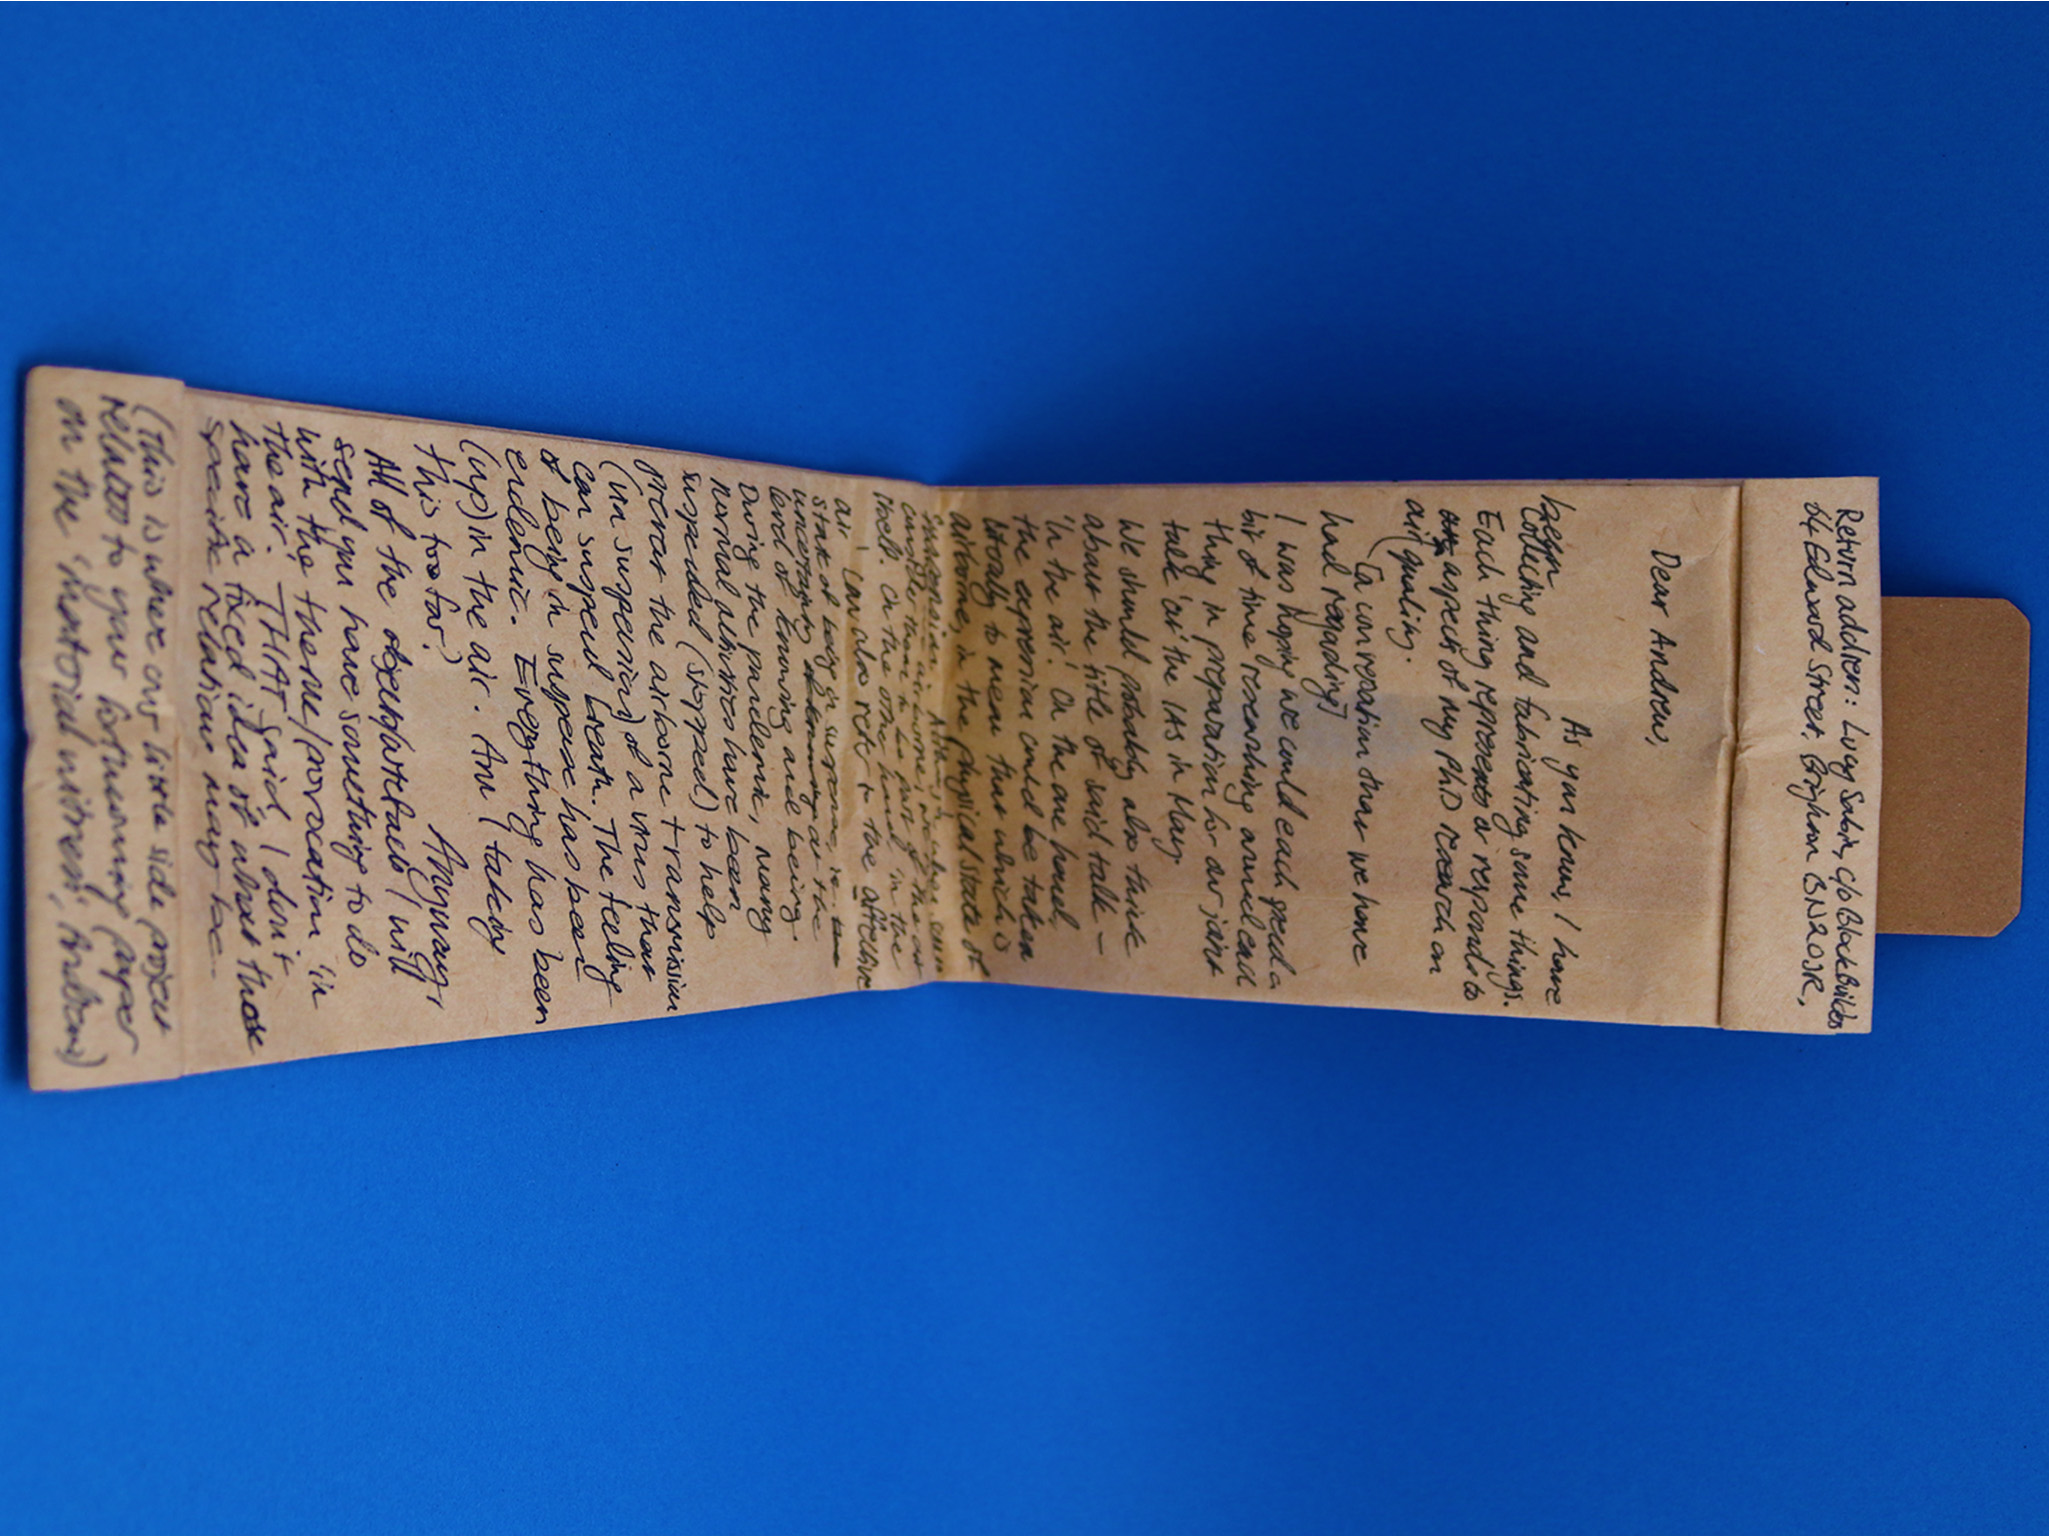 Return address: Lucy Sabin, c/o Black Builds
84 Edward Street, Brighton BN2 0JR,
Dear Andrew,
As you know, I have
began
collecting and fabricating some things.
Each thing represents or responds to
aspects of my PhD research on
air quality.
[a conversation that we have
had regarding]
I was hoping we could each spend a
bit of time researching
thing in preparation for our joint
talk at the IAS in May.
We should probably also think
about the title of said talk —
'in the air'. On the one hand,
the expression could be taken
literally to mean that which is
airborne, in the physical state of
suspension.
consider them to be part of the air
itself. On the other hand, 'in the
air' can also refer to the affective
state of being in suspense, to
uncertainty at the
level of knowing and being.
During the pandemic, many
normal activities have been
suspended (stopped) to help
prevent the airborne transmission
(in suspension) of a virus that
can suspend breath. The feeling
of being in suspense has been
endemic. Everything has been
(up) in the air. Am I taking
this too far?
Anyway,
All of the objects/artefacts I will
send you have something to do
with the theme/provocation 'in
the air'. THAT said, I don't
have a fixed idea of what those
specific relations may be.
(This is where our little side project
relates to your forthcoming paper
on the